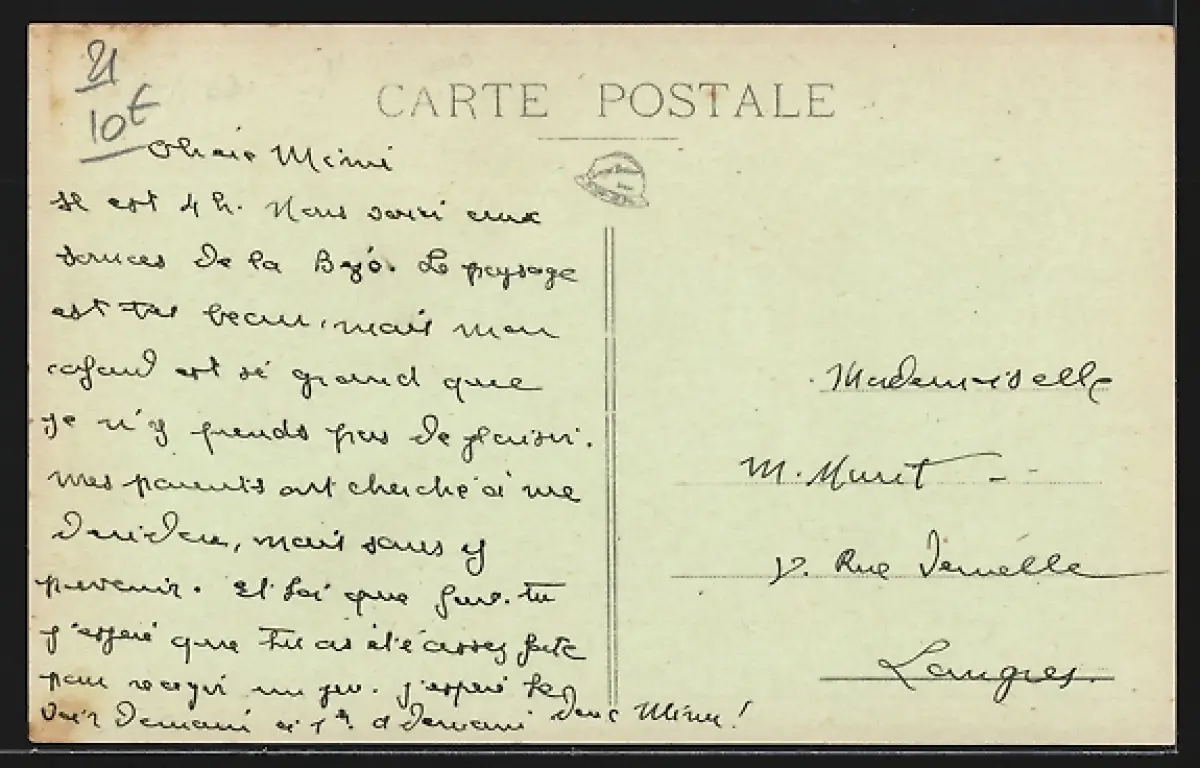 21
10€
CARTE POSTALE
Chère Mimi
Il est 4 h. Nous voici aux
sources de la . Le paysage
est très beau, mais mon
cafard est si grand que
je n'y prends pas de plaisir.
Mes parents ont cherché à me
dérider, mais sans y
parvenir. Et toi que fais-tu
j'espère que tu as été assez forte
pour un peu. j'espère te
voir demain à 1h. a demain donc Mimi!
Mademoiselle
M. Muret
Rue
Langres.